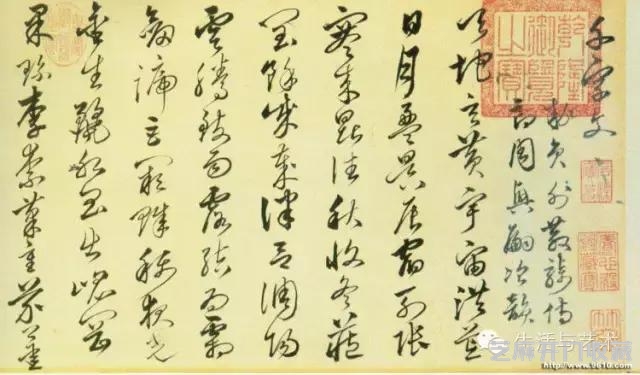 千字文
敕員外散騎侍
郎周興嗣次韻
天地玄黃宇宙洪荒
日月盈昃辰宿列張
寒來暑往秋收冬藏
閏餘成歲律呂調陽
雲騰致雨露結為霜
劍號巨闕珠稱夜光
金生麗水玉出崐岡
果珍李柰菜重芥薑
乾隆御覽之寶
生活与艺术
http://www.9610.com